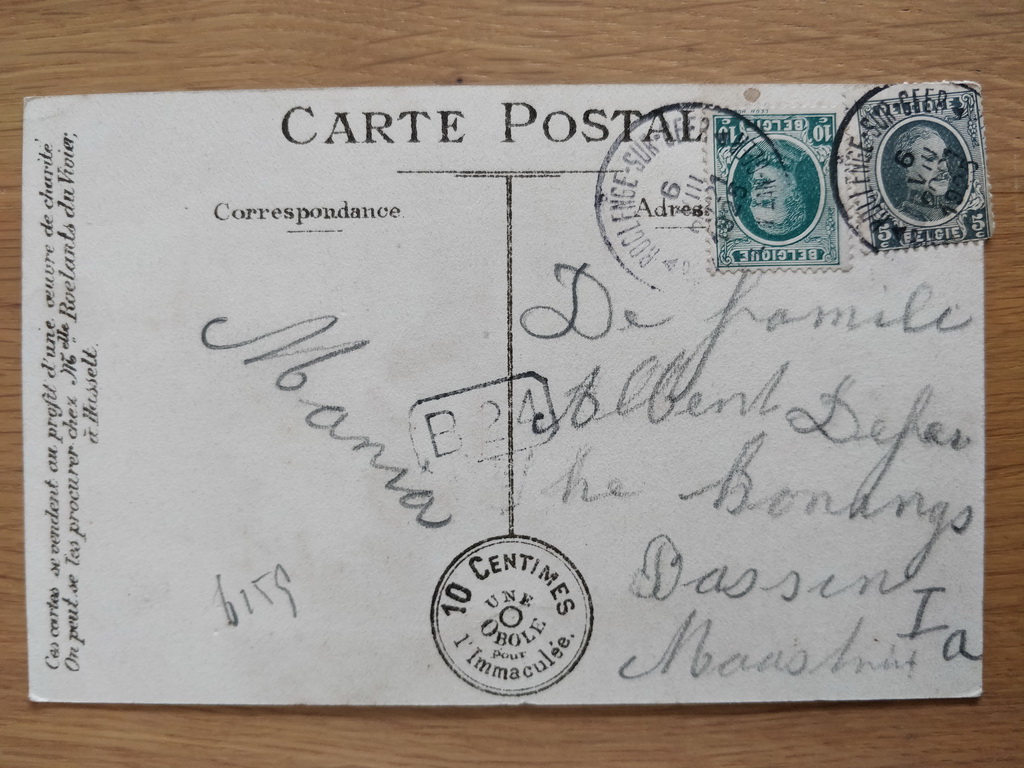 CARTE POSTAL
Correspondance
Adres
Ces cartes se vendent au profit d'une œuvre de charité
On peut se les procurer chez Melle Roelants du Vivier,
à Hasselt.
ROCLENGE-SUR-GEER
6
III
10
BELGIË
BELGIQUE
10
ROCLENGE-SUR-GEER
6
5
BELGIE
5
Maria
B 24
De famili
Albert Defau
the Bonangs
Bassin
I a
Maastricht
10 CENTIMES
UNE
OBOLE
pour
l'Immaculée.